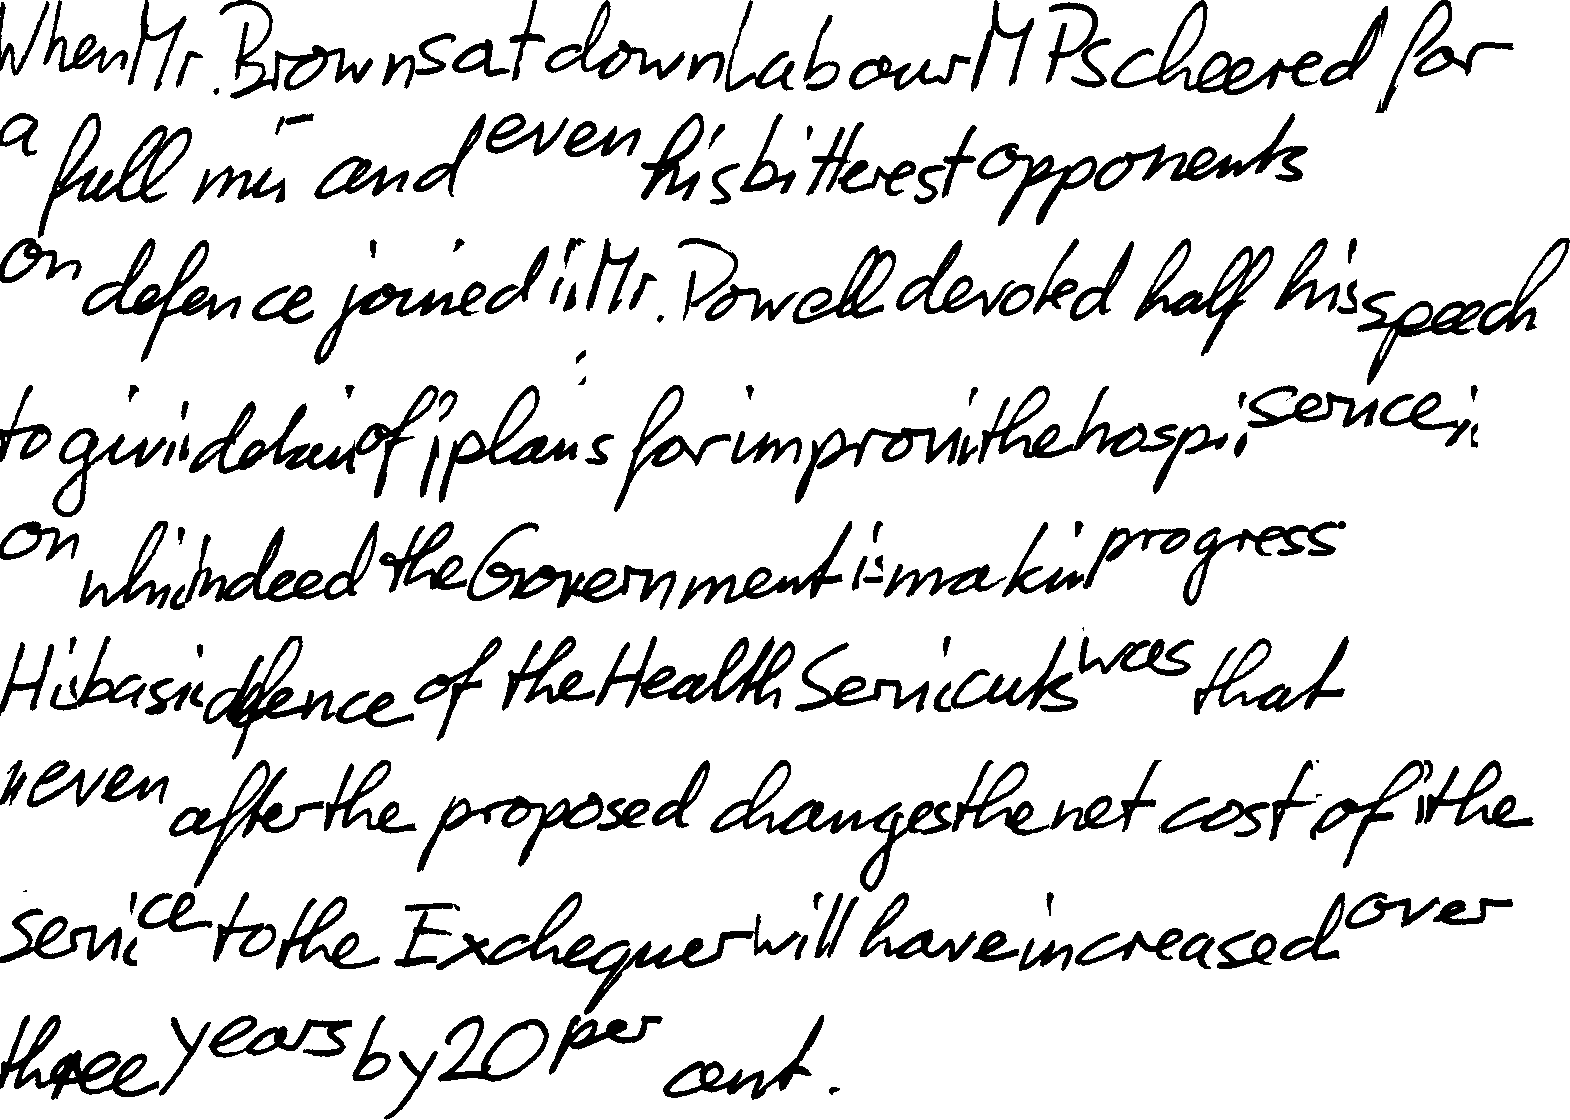 When Mr. Brown sat down Labour MPs cheered for
a full and even his bitterest opponents
on defence joined in Mr. Powell devoted half his speech
to giving details of plans for improving the hospital service
on which indeed the Government is making progress
His basic defence of the Health Service cuts was that
even after the proposed changes the net cost of the
service to the Exchequer will have increased over
three years by 20 per cent.